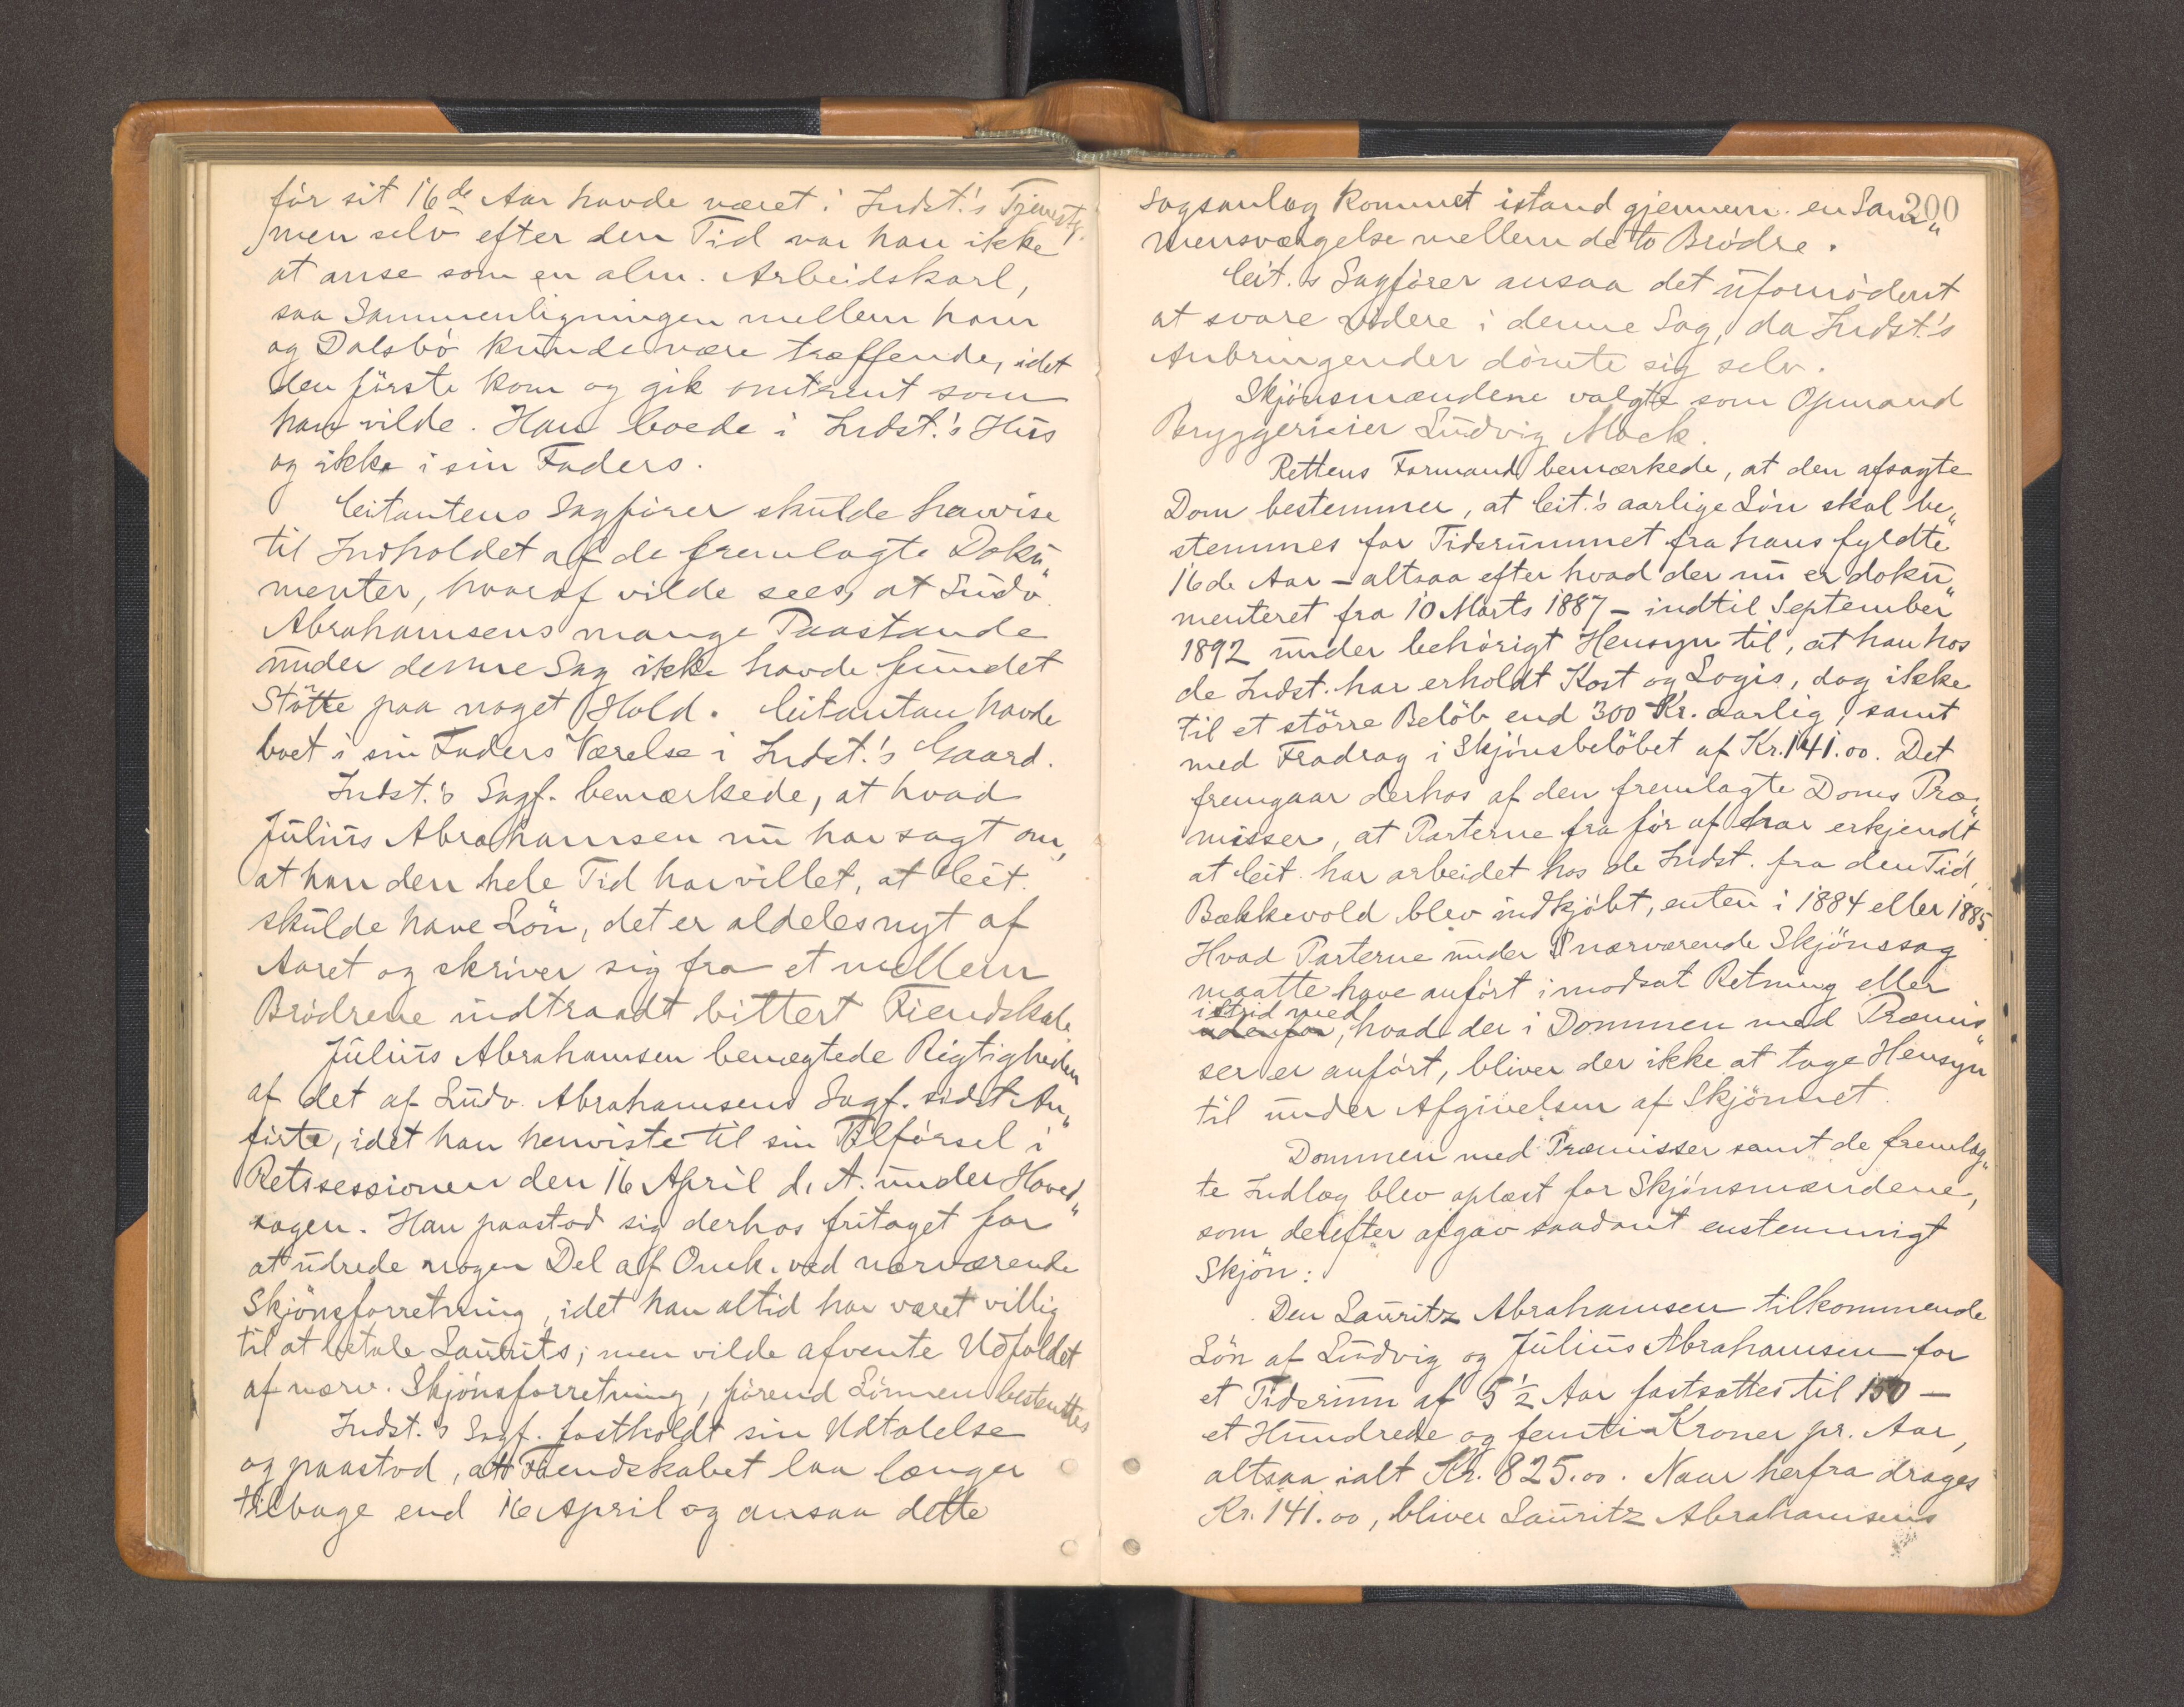 før sit 16de Aar havde været i Indst.'s Tjeneste.
men selv efter den Tid var han ikke
at anse som en alm. Arbeidskarl,
saa Sammenligningen mellem ham
og Dalsbö kunde være træffende, idet
den förste kom og gik omtrent som
han vilde. Han boede i Indst.'s Hus
og ikke i sin Faders.
Citantens Sagfører skulde henvise
til Indholdet af de fremlagte Doku„
menter, hvoraf vilde sees, at Ludv.
Abrahamsens mange Paastande
under denne Sag ikke havde fundet
Stötte paa noget Hold. Citantan havde
boet i sin Faders Værelse i Indst.'s Gaard.
Indst.'s Sagf. bemærkede, at hvad
Julius Abrahamsen nu har sagt om,
at han den hele Tid har villet, at Cit.
skulde have Lön, det er aldeles nyt af
Aaret og skriver sig fra et mellem
Brödrene indtraadt bittert Fiendskab.
Julius Abrahamsen benegtede Rigtigheden
af det af Ludv. Abrahamsens Sagf. sidst An„
førte, idet han henviste til sin Tilførsel i
Retssessionen den 16 April d. A. under Hoved„
sagen. Han paastod sig derhos fritaget for
at udrede nogen Del af Omk. ved nærværende
Skjönsforretning, idet han altid har været villig
til at betale Laurits; men vilde afvente Udfaldet
af nærv. Skjönsforretning, förend Lönnen bestemtes
Indst.'s Sagf. fastholdt sin Udtalelse
og paastod, at Fiendskabet laa længer
tilbage end 16 April og ansaa dette
200
Sagsanlæg kommet istand gjennem en Sam„
mensværgelse mellem de to Brödre.
Cit.'s Sagfører ansaa det ufornödent
at svare videre i denne Sag, da Indst.'s
Anbringender dömte sig selv.
Skjönsmændene valgte som Opmand
Bryggerieier Ludvig Mack.
Rettens Formand bemærkede, at den afsagte
Dom bestemmer, at Cit.'s aarlige Lön skal be„
stemmes for Tidsrummet fra hans fyldte
16de Aar – altsaa efter hvad der nu er doku„
menteret fra 10 Marts 1887 – indtil September
1892 under behörigt Hensyn til, at han hos
de Indst. har erholdt Kost og Logis, dog ikke
til et större Belöb end 300 Kr. aarlig, samt
med Fradrag i Skjönsbelöbet af Kr. 141.00. Det
fremgaar derhos af den fremlagte Doms Præ„
misser, at Parterne fra för af har erkjendt,
at Cit. har arbeidet hos de Indst. fra den Tid,
Bækkevold blev indkjöbt, enten i 1884 eller 1885.
Hvad Parterne under nærværende Skjönssag
maatte have anfört i modsat Retning eller
istrid med
udenfor, hvad der i Dommen med Præmis„
ser er anfört, bliver der ikke at tage Hensyn
til under Afgivelsen af Skjönnet.
Dommen med Præmisser samt de fremlag„
te Indlæg blev oplæst for Skjönsmændene,
som derefter afgav saadant enstemmigt
Skjön:
Den Lauritz Abrahamsen tilkommende
Lön af Ludvig og Julius Abrahamsen for
et Tidsrum af 5 ½ Aar fastsattes til 150 —
et Hundrede og femti – Kroner pr. Aar,
altsaa ialt Kr. 825.00. Naar herfra drages
Kr. 141.00, bliver Lauritz Abrahamsens